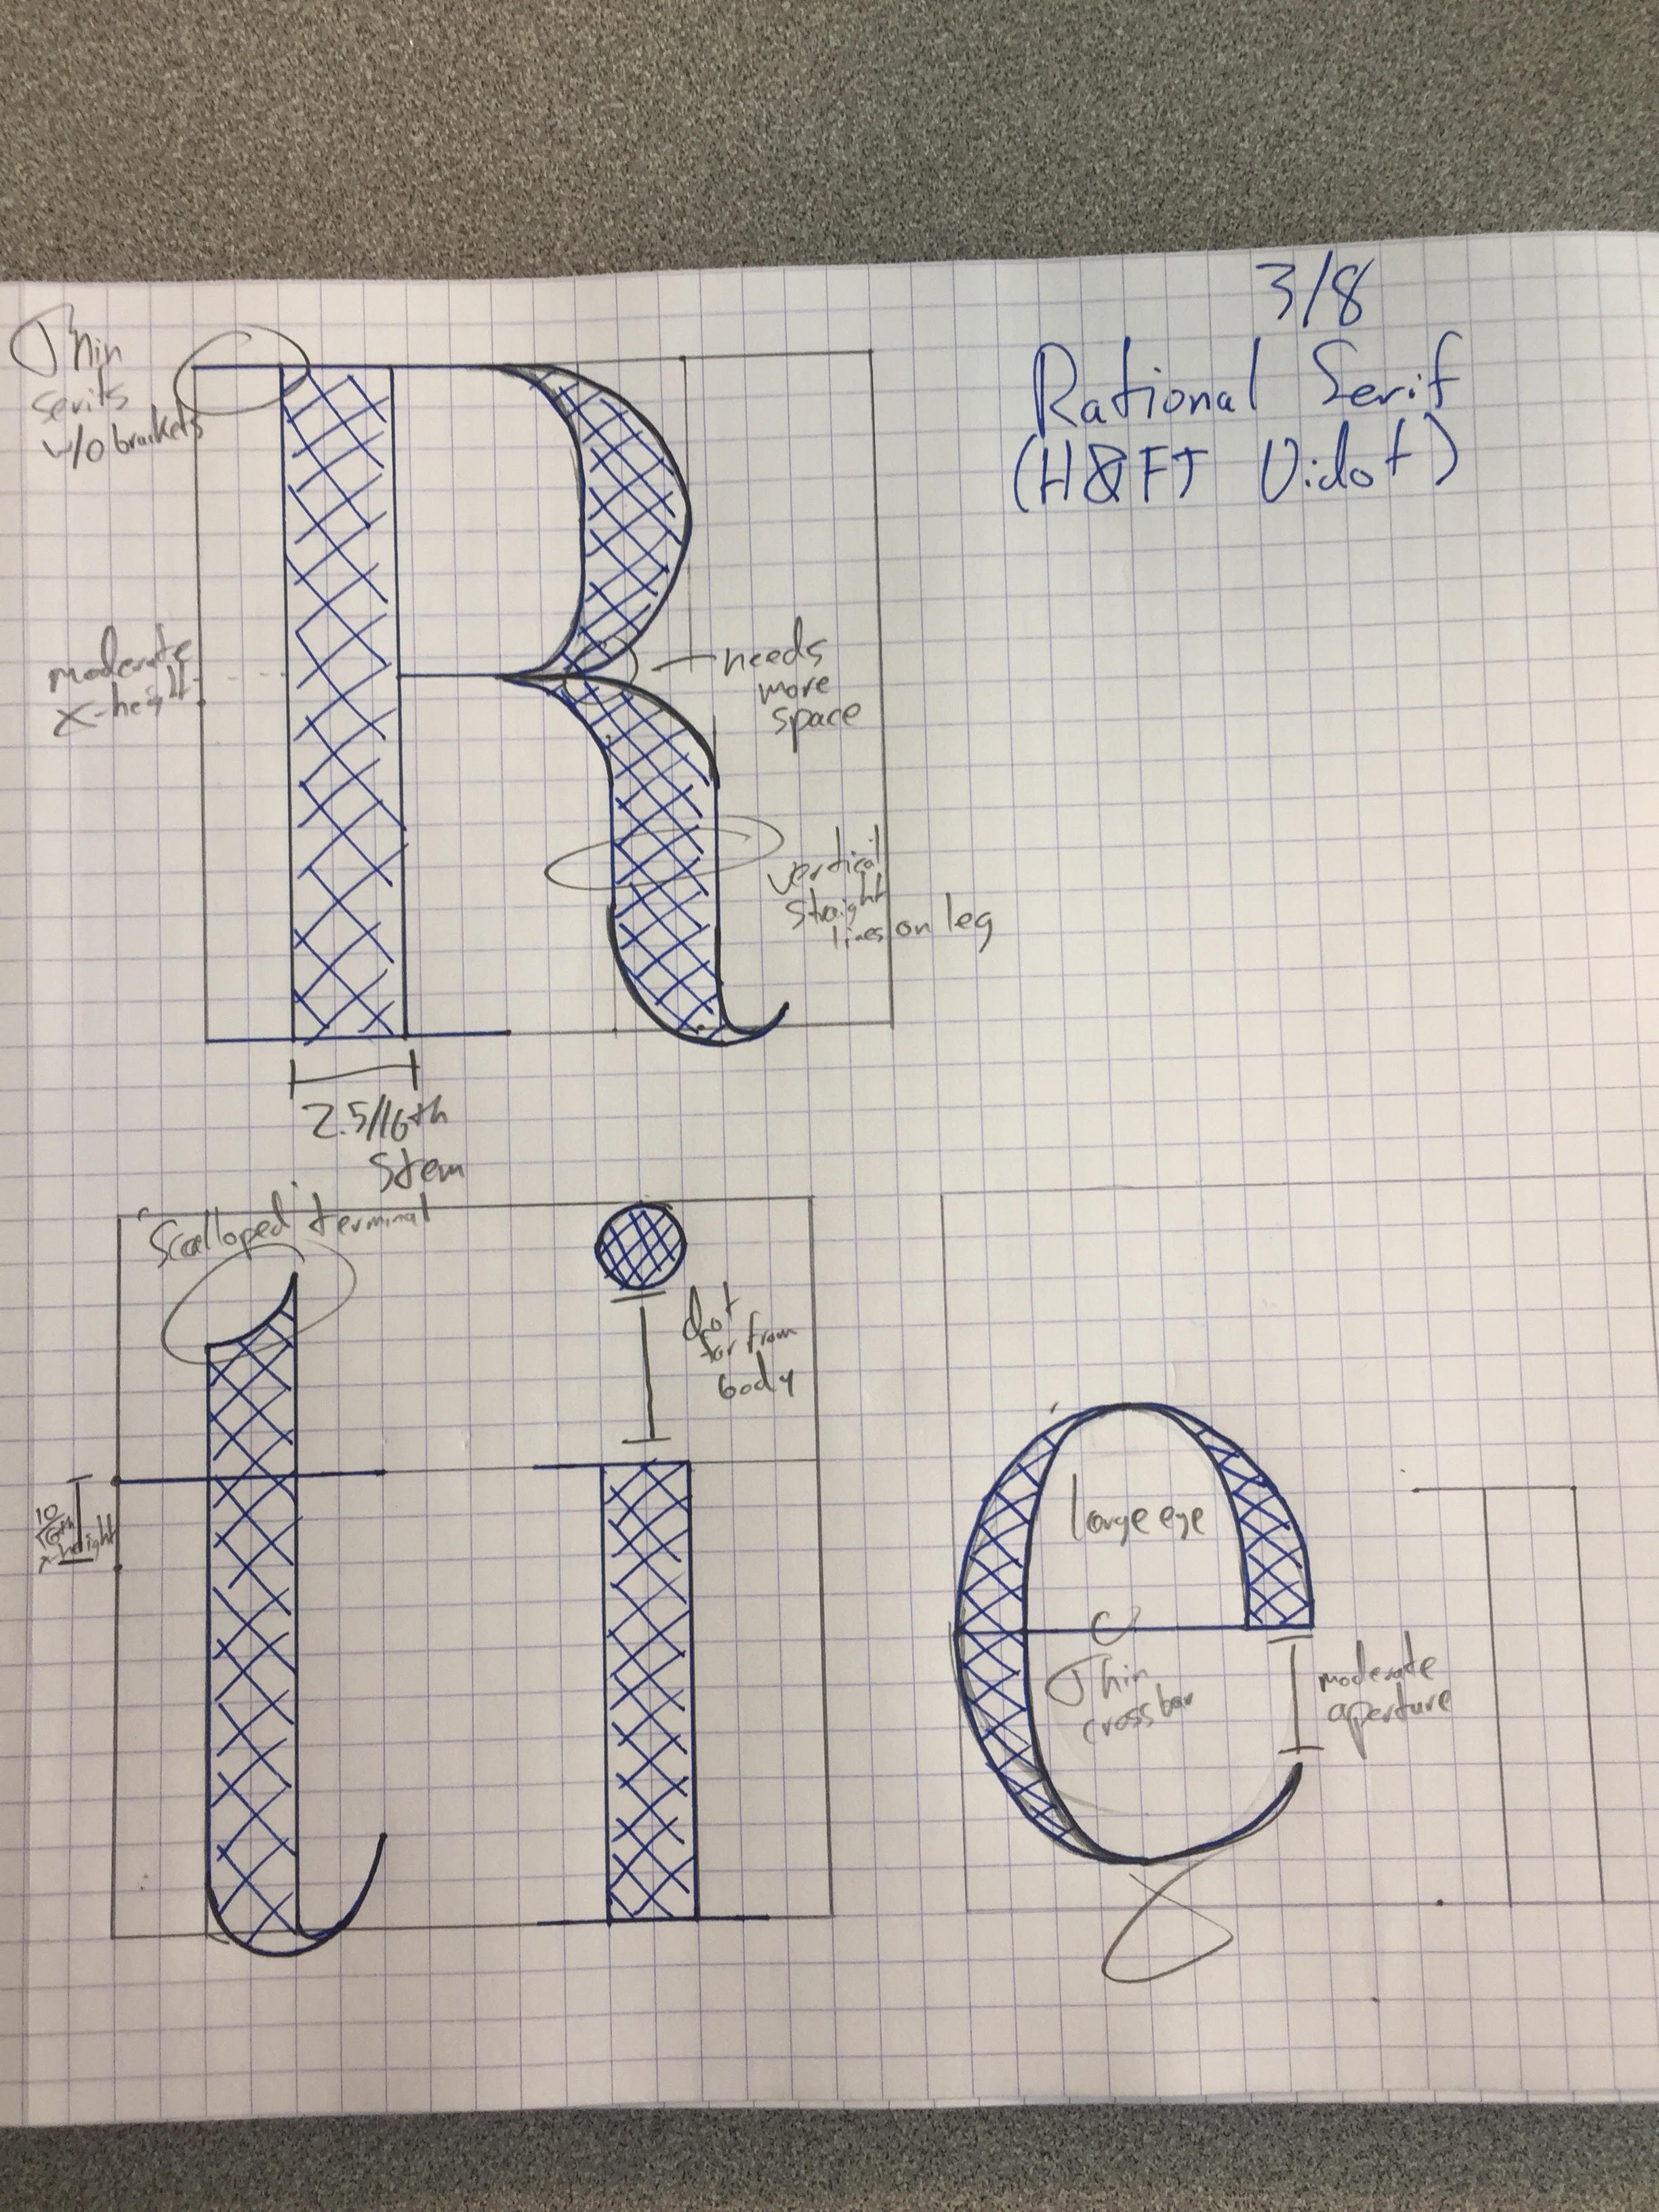 3/8
Rational Serif
(H&FJ Didot)
Thin
serifs
w/o brackets
moderate
x-height
needs
more
space
vertical
straight
lines on leg
2.5/16th
stem
"Scalloped" terminal
dot
far from
body
10/16th
x-height
large eye
Thin
crossbar
moderate
aperture